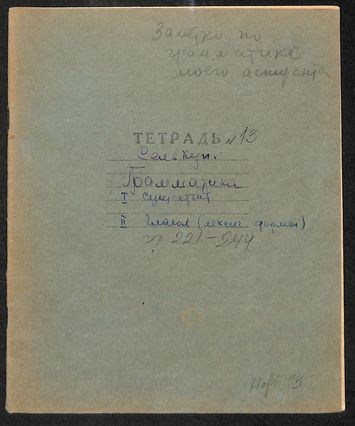 Заметки по
грамматике
моего аспиранта
ТЕТРАДЬ №13
Селькуп.
Грамматика
I Существит.
II Глагол (лексич. формы)
стр. 221-244